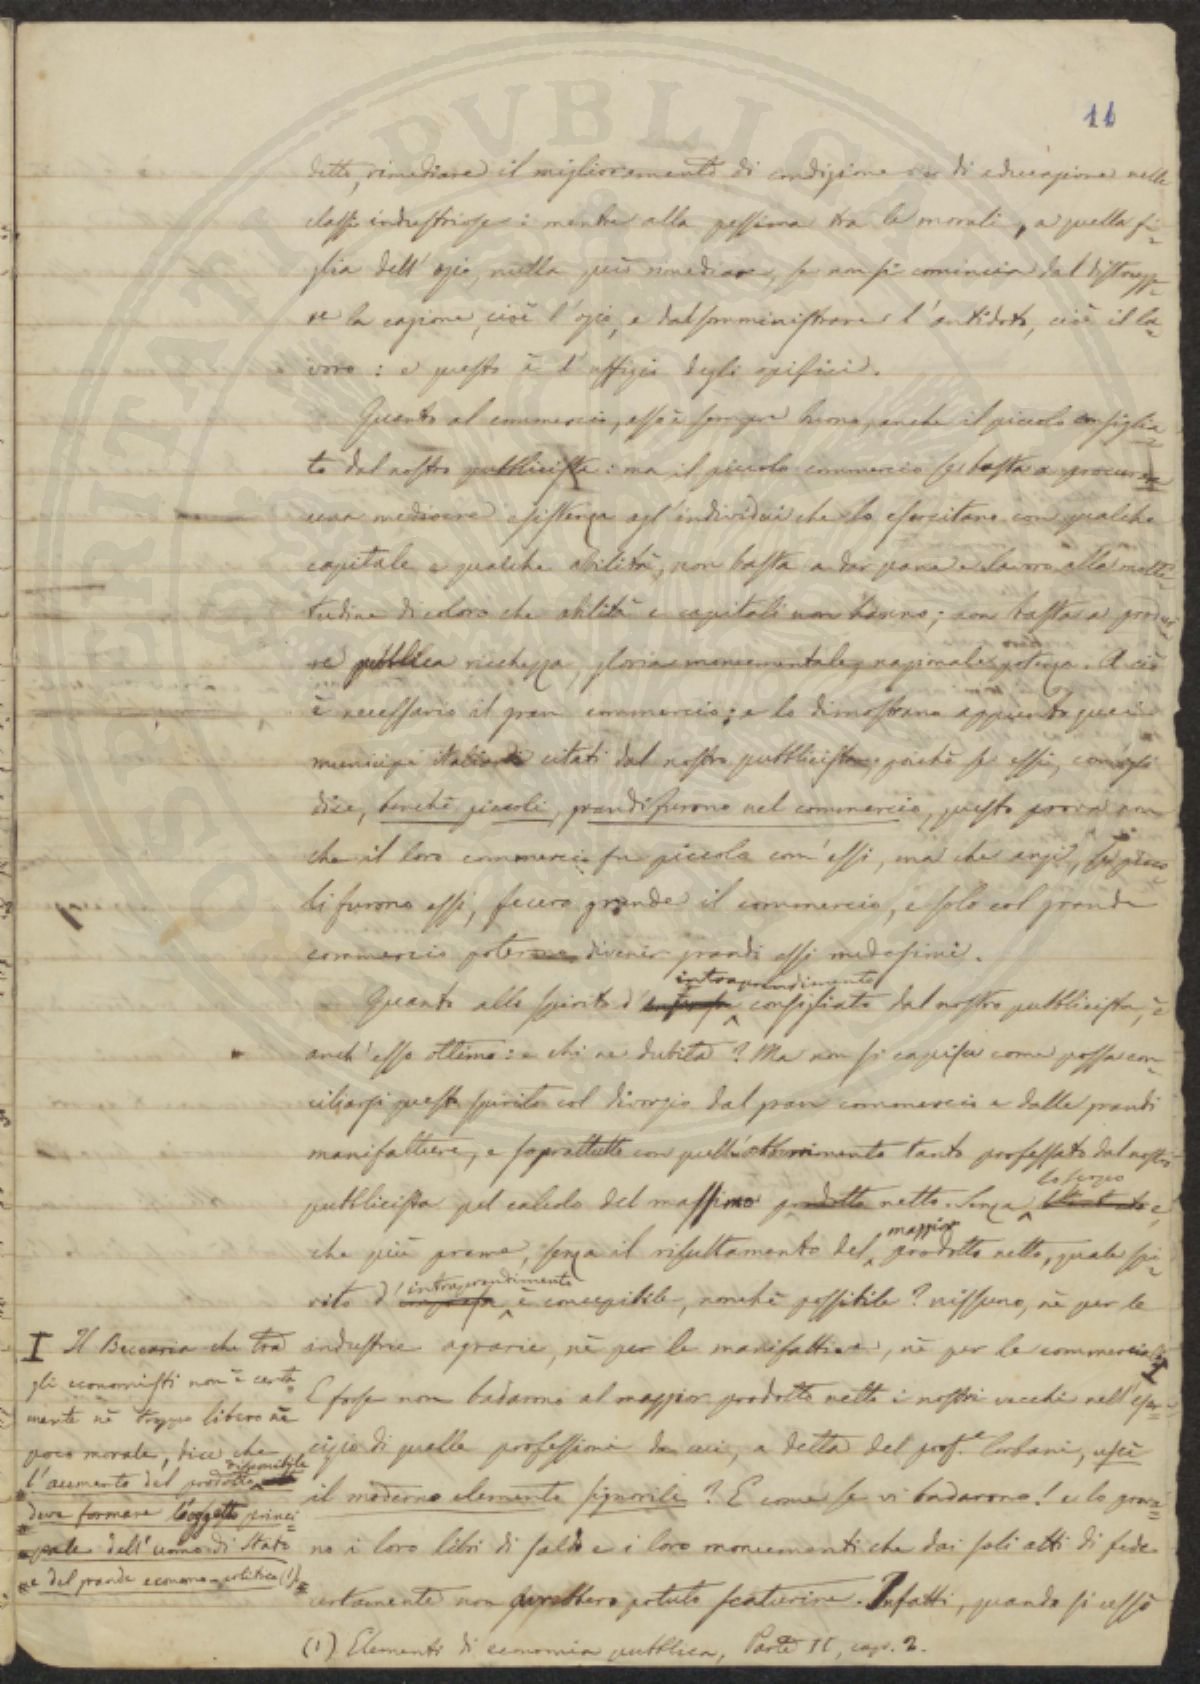 11
detto, rimediare il miglioramento di condizione e di educazione nelle
classi industriose: mentre alla pessima tra le morali, a quella fi=
glia dell'ozio, nulla può rimediare, se non si comincia dal distrugge=
re la cagione, cioè l'ozio, e dal somministrare l'antidoto, cioè il la=
voro: e questo è l'uffizio degli opifici.
Quanto al commercio, esso è sempre buono, anche il piccolo consiglia=
to dal nostro pubblicista: ma il piccolo commercio se basta a procurare
una mediocre esistenza agl'individui che lo esercitano con qualche
capitale e qualche abilità, non basta a dar pane e lavoro alla molti=
tudine di coloro che abilità e capitali non hanno; non basta a produr=
re pubblica ricchezza, gloria monumentale, nazionale potenza. A ciò
è necessario il gran commercio; e lo dimostrano appunto quei
municipi italiani citati dal nostro pubblicista; poichè se essi, com'egli
dice, benchè piccoli, grandi furono nel commercio, questo prova non
che il loro commercio fu piccolo com'essi, ma che anzi, se picco=
li furono essi, fecero grande il commercio, e solo col grande
commercio poterono divenir grandi essi medesimi.
intraprendimento
Quanto allo spirito d'impresa consigliato dal nostro pubblicista, è
anch'esso ottimo: e chi ne dubita? Ma non si capisce come possa con=
ciliarsi questo spirito col divorzio dal gran commercio e dalle grandi
manifatture, e soprattutto con quell'abborrimento tanto professato dal nostro
pubblicista pel calcolo del massimo prodotto netto. Senza lo scopo e,
che più preme, senza il risultamento del maggior prodotto netto, quale spi=
rito d'impresa intraprendimento è concepibile, nonchè possibile? nissuno, nè per le
industrie agrarie, nè per le manifatture, nè per le commerciali. I
E forse non badarono al maggior prodotto netto i nostri vecchi nell'eser=
cizio di quelle professioni da cui, a detta del prof.e Corbani, uscì
il moderno elemento signorile? E come se vi badarono! e lo prova=
no i loro libri di saldo e i loro monumenti che dai soli atti di fede
certamente non avrebbero potuto scaturire. Infatti, quando si cessò
I Il Beccaria che tra
gli economisti non è certa=
mente nè troppo libero nè
poco morale, dice che
l'aumento del prodotto disponibile
deve formare l'oggetto princi=
pale dell'uomo di Stato
e del grande economo-politico (1).
(1) Elementi di economia pubblica, Parte II, cap. 2.